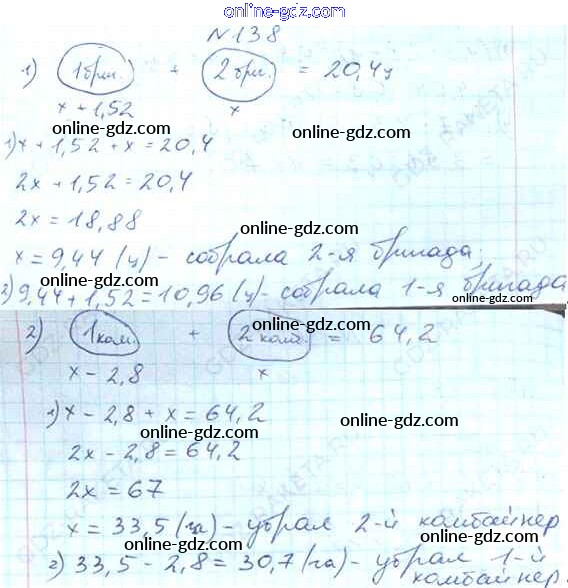 online-gdz.com
№138
1) 1 бриг. + 2 бриг. = 20,4ц
x + 1,52 x
online-gdz.com
online-gdz.com
1) x + 1,52 + x = 20,4
2x + 1,52 = 20,4
online-gdz.com
2x = 18,88
online-gdz.com
x = 9,44 (ц) - собрала 2-я бригада;
2) 9,44 + 1,52 = 10,96 (ц) - собрала 1-я бригада
online-gdz.com
2) 1 ком. + 2 ком. = 64,2
online-gdz.com
x - 2,8 x
1) x - 2,8 + x = 64,2
online-gdz.com
online-gdz.com
2x - 2,8 = 64,2
2x = 67
online-gdz.com
x = 33,5 (га) - убрал 2-й комбайнер
2) 33,5 - 2,8 = 30,7 (га) - убрал 1-й
комбайнер.
online-gdz.com